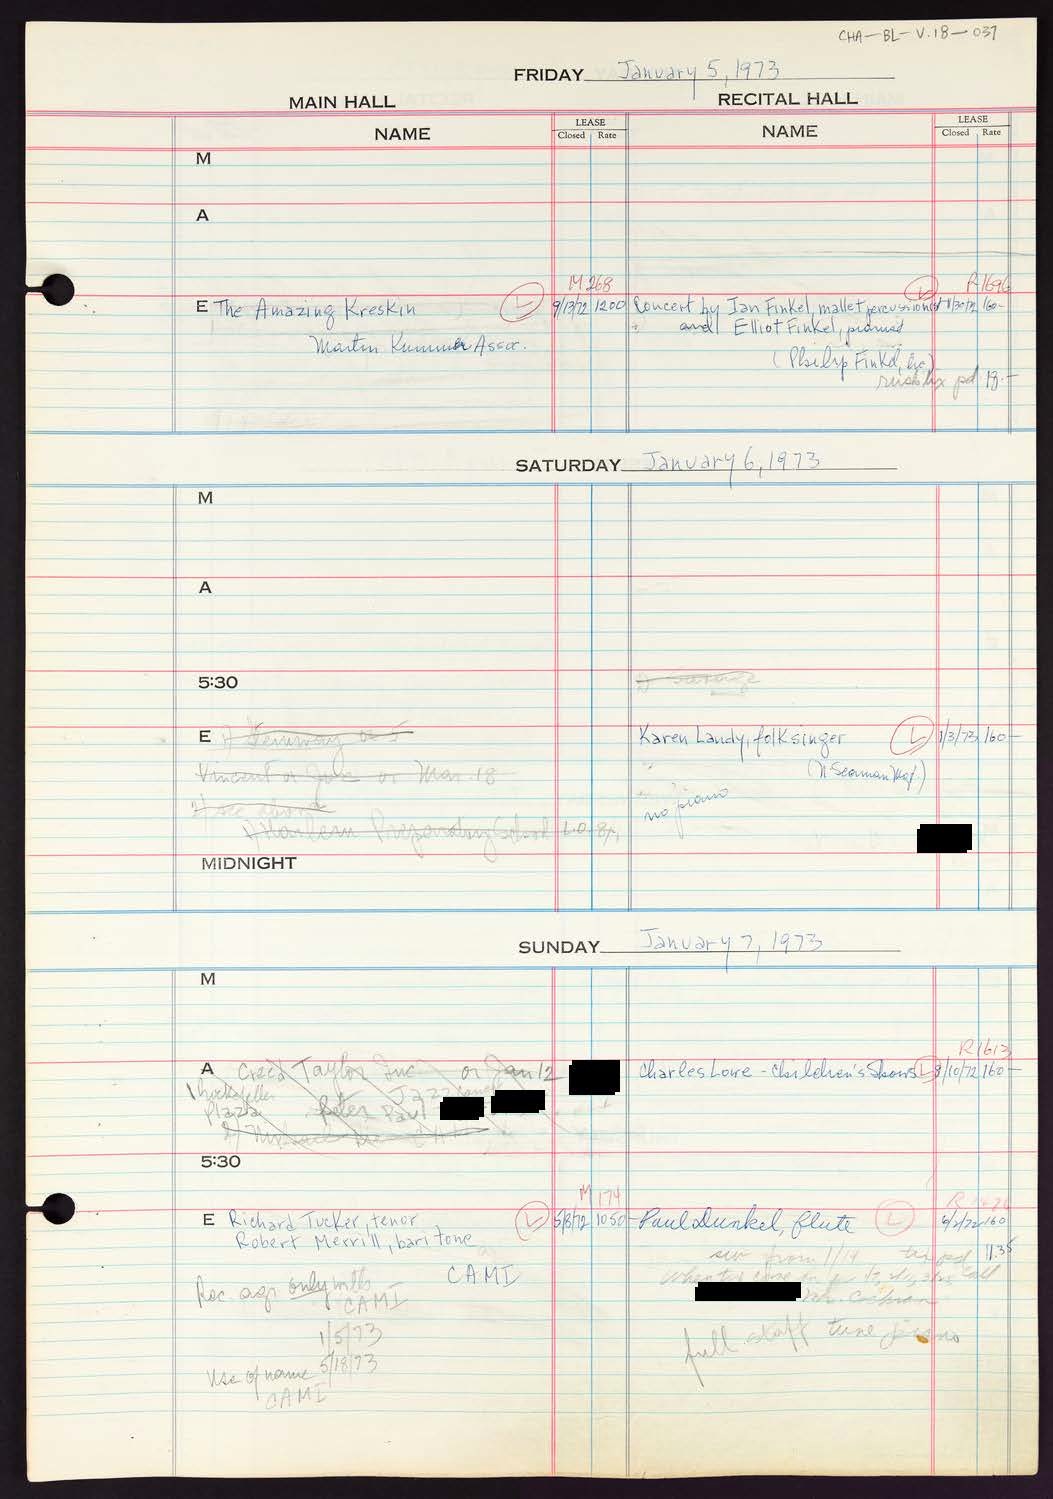 CHA-BL-V.18-037
FRIDAY January 5, 1973
MAIN HALL RECITAL HALL
NAME LEASE Closed Rate NAME LEASE Closed Rate
M
A
M 268 R1696
E The Amazing Kreskin L 9/13/72 1200 Concert by Ian Finkel, mallet percussionist L 11/30/72 160-
and Elliot Finkel, pianist
Martin Kummer Assoc.
(Philip Finkel, Inc)
pd 18.-
SATURDAY January 6, 1973
M
A
5:30
E Karen Landy, folksinger L 1/3/73 160-
Vincent or or Mar. 18
(N Seaman Mgt.)
2) see above
no piano
Harlem Preparatory School L.O. 8
MIDNIGHT
SUNDAY January 7, 1973
M
R1613
A Creed Taylor Inc. or Jan 12 Charles Lowe - Children's Shows L 8/10/72 160-
1 Rockefeller
Plaza Jazz
Peter Paul
5:30
M 174
E Richard Tucker, tenor L 5/8/72 1050- Paul Dunkel, flute L 6/2/72 160
Robert Merrill, baritone
from 1/14 pd 11.35
CAMI
Rec. agr. only with
CAMI
Mr. Cochran
1/5/73
full staff tune piano
Use of name 5/18/73
CAMI